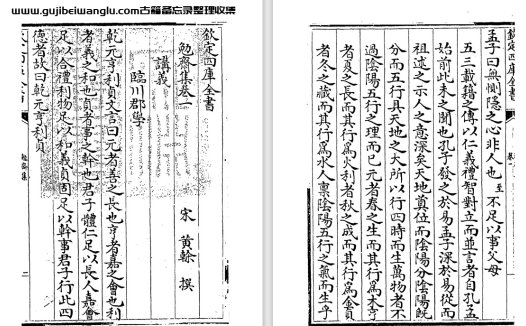 www.gujibeiwanglu.com古籍备忘录整理收集
欽定四庫全書
勉齋集卷一
宋 黃榦 撰
講義
臨川郡學
乾元亨利貞文言曰元者善之長也亨者嘉之會也利
者義之和也貞者事之幹也君子體仁足以長人嘉會
足以合禮利物足以和義貞固足以幹事君子行此四
德者故曰乾元亨利貞
勉齋集
欽定四庫全書
孟子曰無惻隱之心非人也至不足以事父母
五三載籍之傳以仁義禮智對立而並言者自孔孟
始前此未之聞也孔子發之於易孟子深於易從而
祖述之示人之意深矣天地奠位而陰陽分陰陽既
分而五行具天地之大所以行四時而生萬物者不
過陰陽五行之理而已元者春之生而其行為木亨
者夏之長而其行為火利者秋之成而其行為金貞
者冬之藏而其行為水人稟陰陽五行之氣而生乎